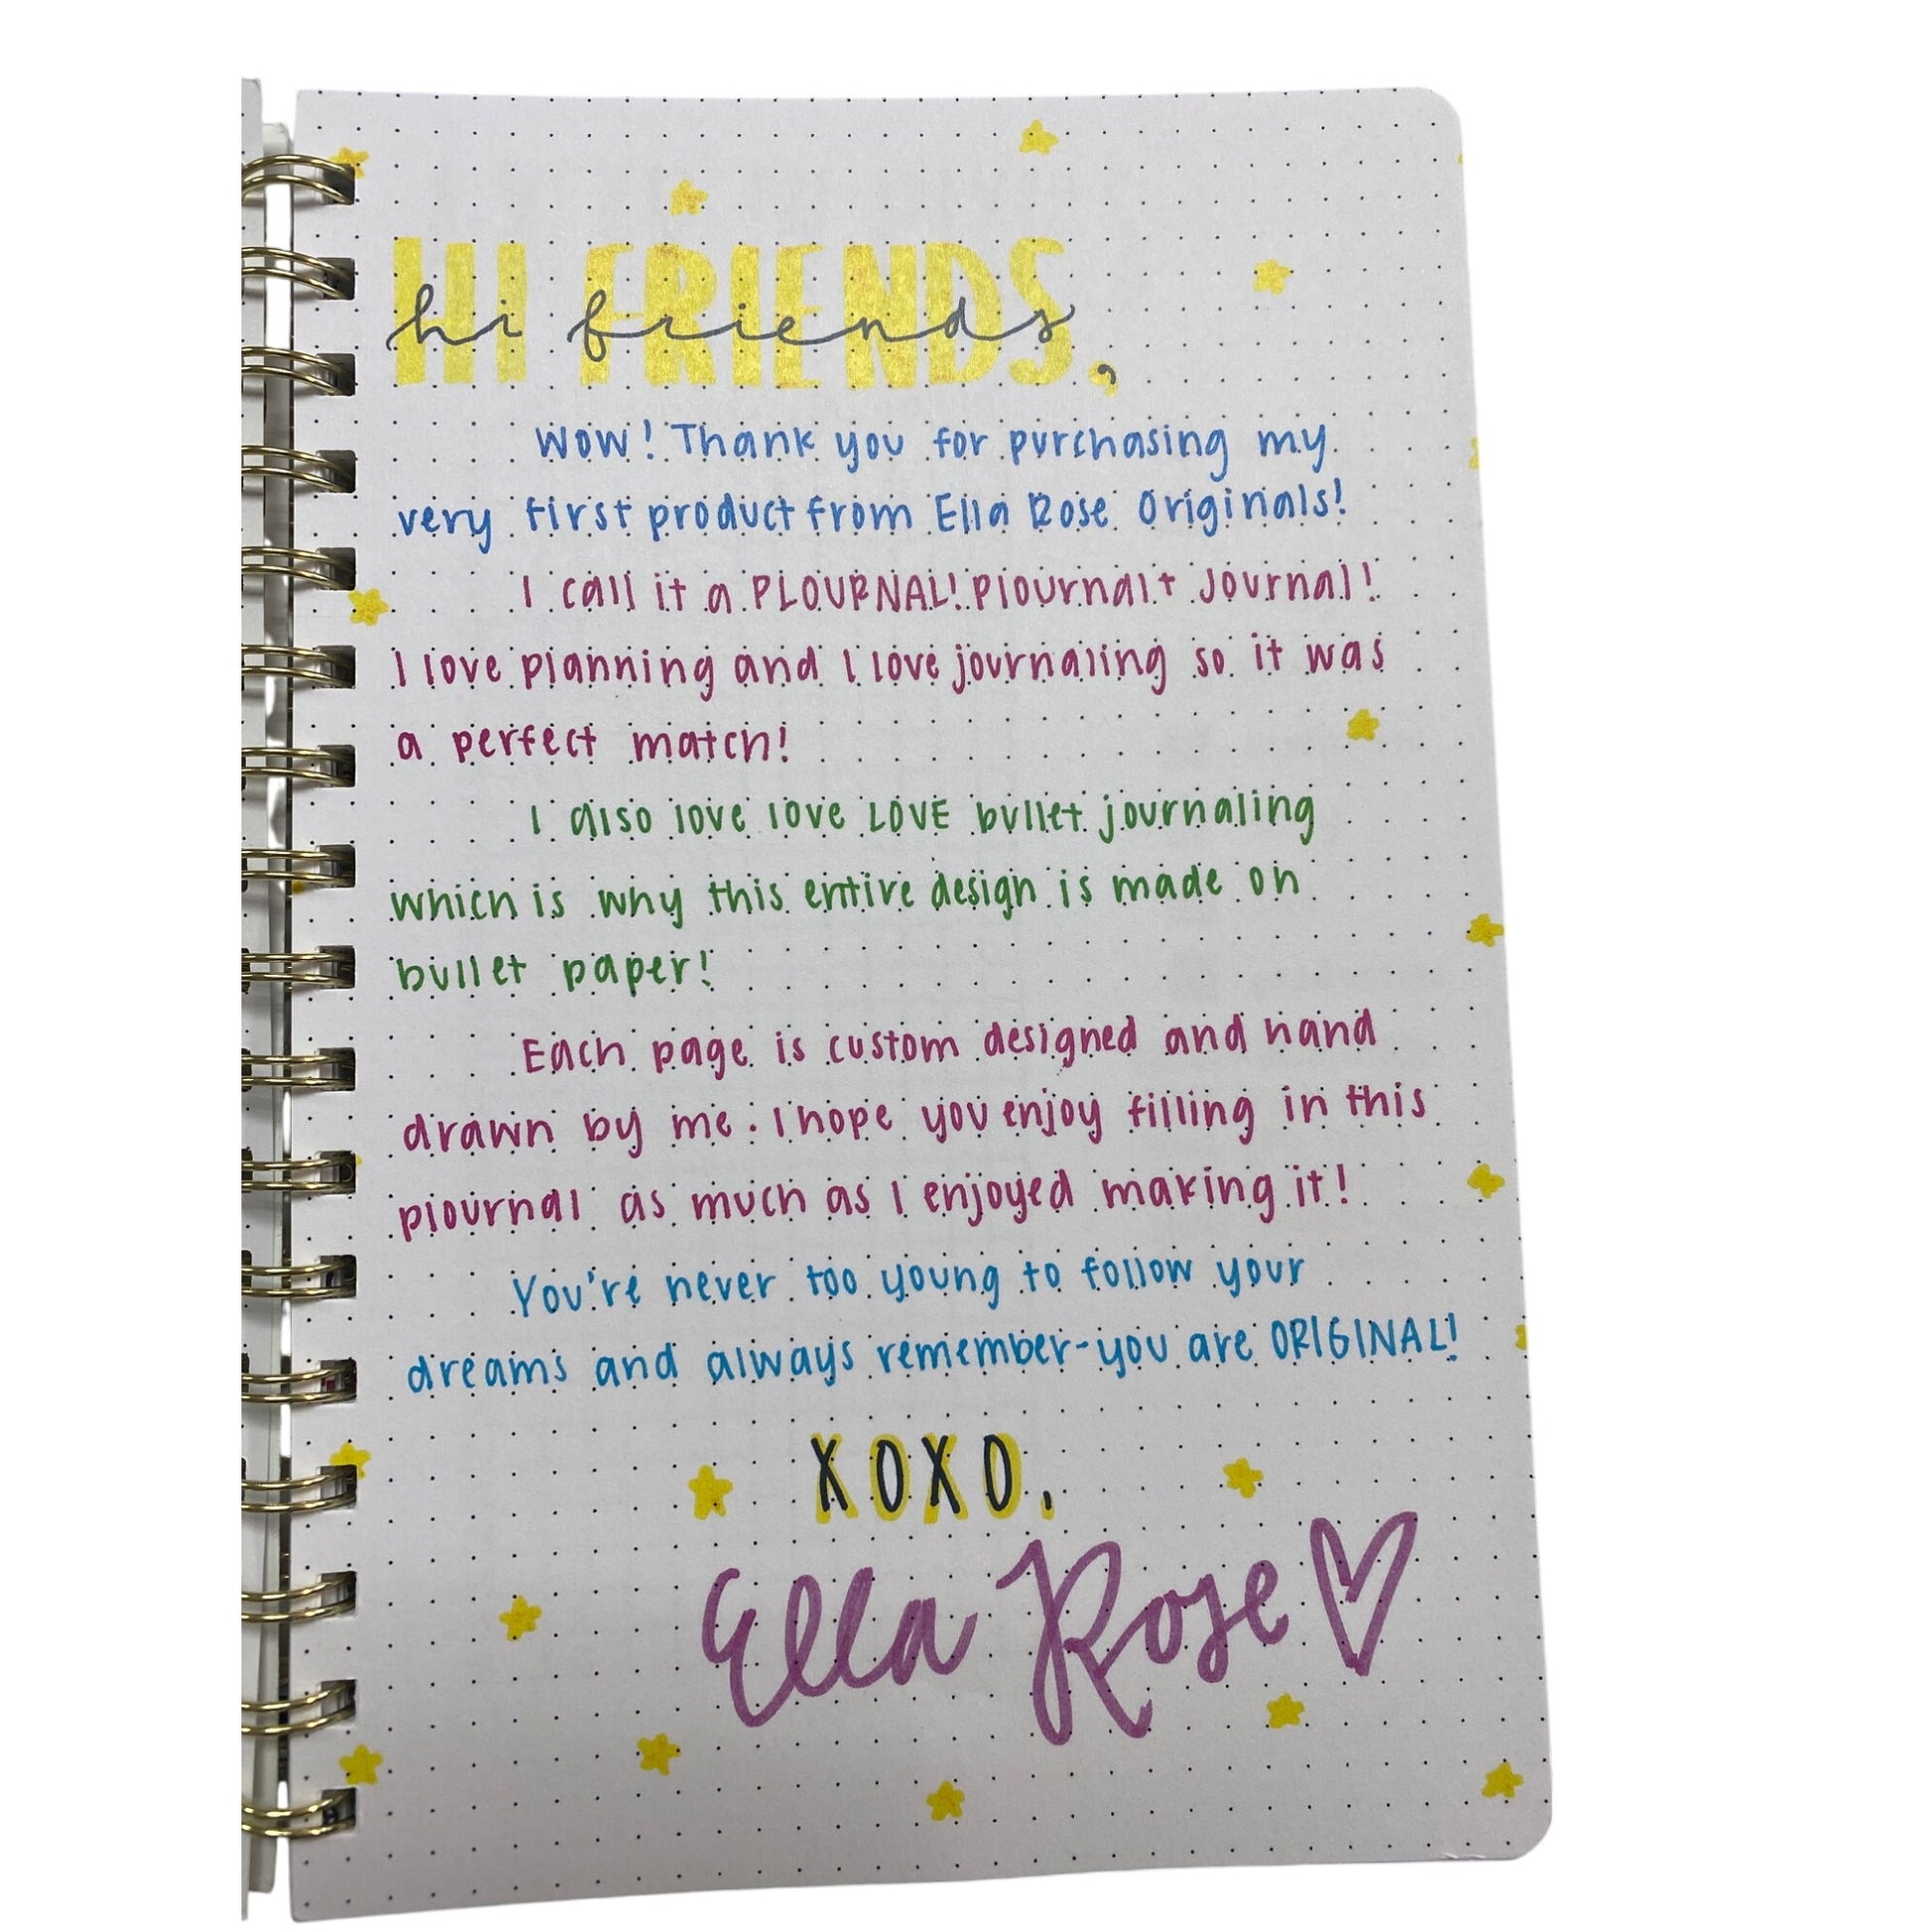 HI FRIENDS,
hi friends,
Wow! Thank you for purchasing my
very first product from Ella Rose Originals!
I call it a PLOURNAL! Plournal + Journal!
I love planning and I love journaling so it was
a perfect match!
I also love love LOVE bullet journaling
which is why this entire design is made on
bullet paper!
Each page is custom designed and hand
drawn by me. I hope you enjoy filling in this
plournal as much as I enjoyed making it!
You're never too young to follow your
dreams and always remember-you are ORIGINAL!
XOXO,
Ella Rose